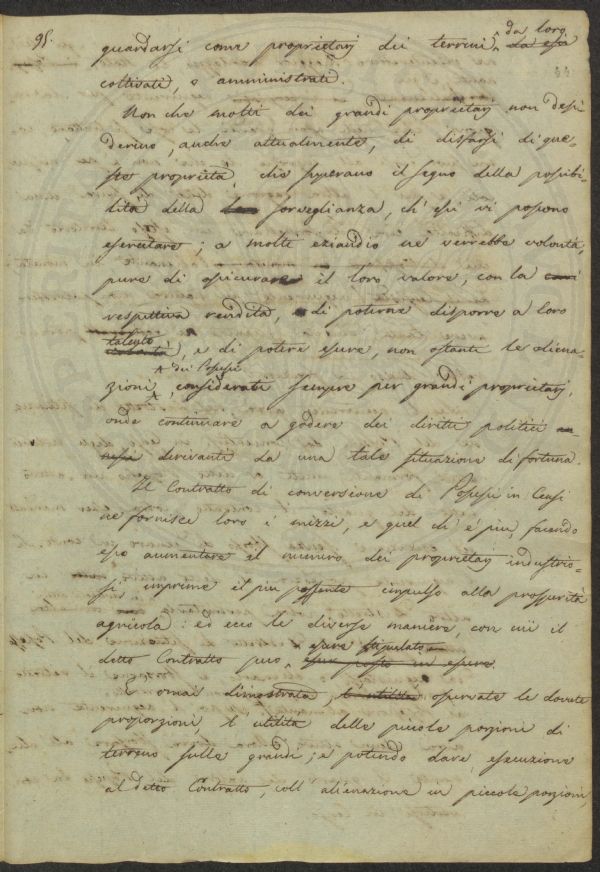 95.
guardarsi come proprietarj dei terreni da loro da essi
coltivati, o amministrati.
Non che molti dei grandi proprietarj non desi-
derino, anche attualmente, di disfarsi di que-
ste proprietà, che superano il segno della possibi-
lità della sorveglianza, ch'essi vi possono
esercitare; a molti eziandio ne verrebbe volontà,
pure di assicurare il loro valore, con la
respettiva rendita, di poterne disporre a loro
talento, e di potere essere, non ostante le aliena-
zioni dei Possessi, considerati sempre per grandi proprietarj,
onde continuare a godere dei diritti politici
derivante da una tale situazione di fortuna.
Il Contratto di conversione di Possessi in Censi
ne fornisce loro i mezzi, e quel ch'è più, facendo
esso aumentare il numero dei proprietarj industrio-
si imprime il più possente impulso alla prosperità
agricola: ed ecco le diverse maniere, con cui il
detto Contratto può essere stipulato esser posto in essere.
È omai dimostrata, l'utilità osservate le dovute
proporzioni, l'utilità delle piccole porzioni di
terreno sulle grandi; e potendo dare esecuzione
al detto Contratto, coll'alienazione in piccole porzioni,